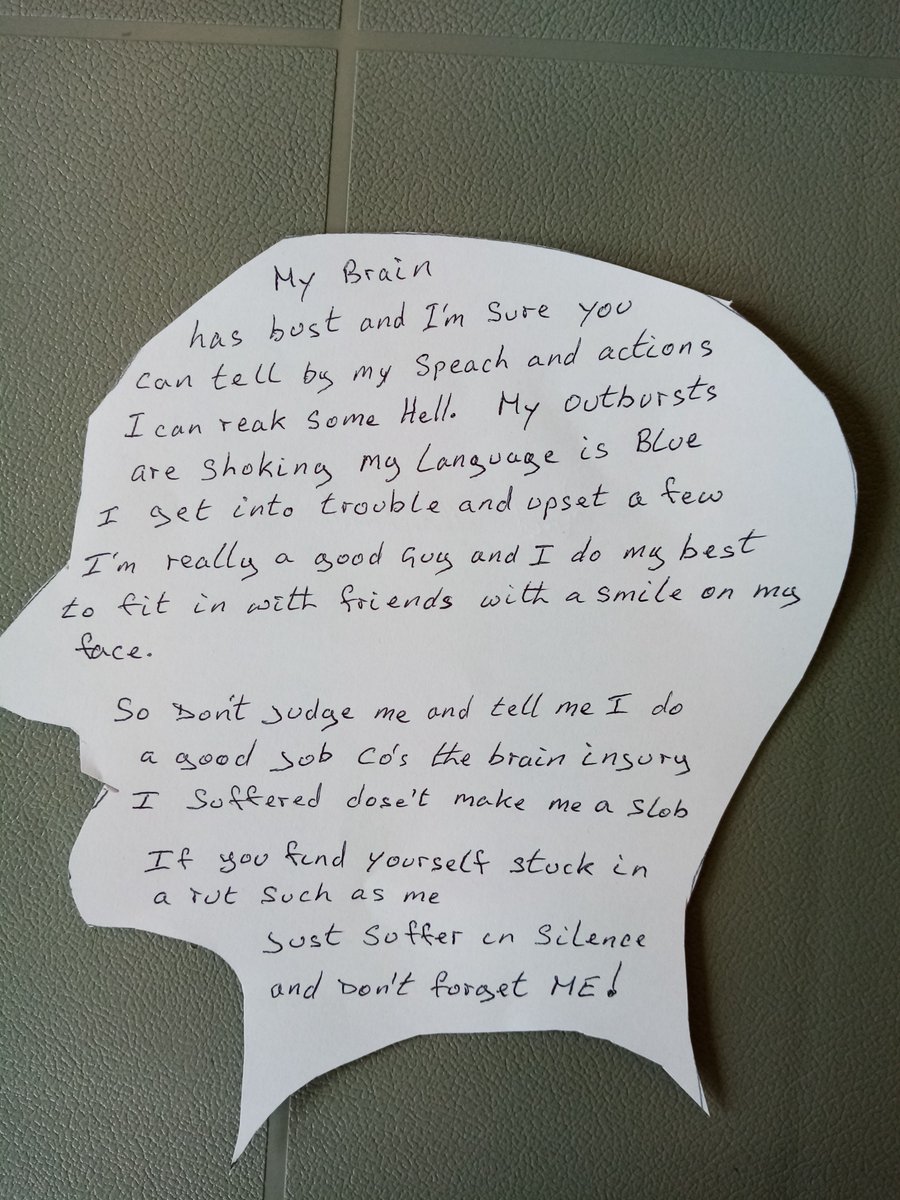 My Brain
has bust and I'm Sure you
can tell by my Speach and actions
I can reak Some Hell. My outbursts
are Shoking my Language is BLue
I get into trouble and upset a few
I'm really a good Guy and I do my best
to fit in with friends with a smile on my
face.
So Don't Judge me and tell me I do
a good Job Co's the brain injury
I Suffered dose't make me a Slob
If you find yourself stuck in
a rut Such as me
Just Suffer in Silence
and Don't forget ME!